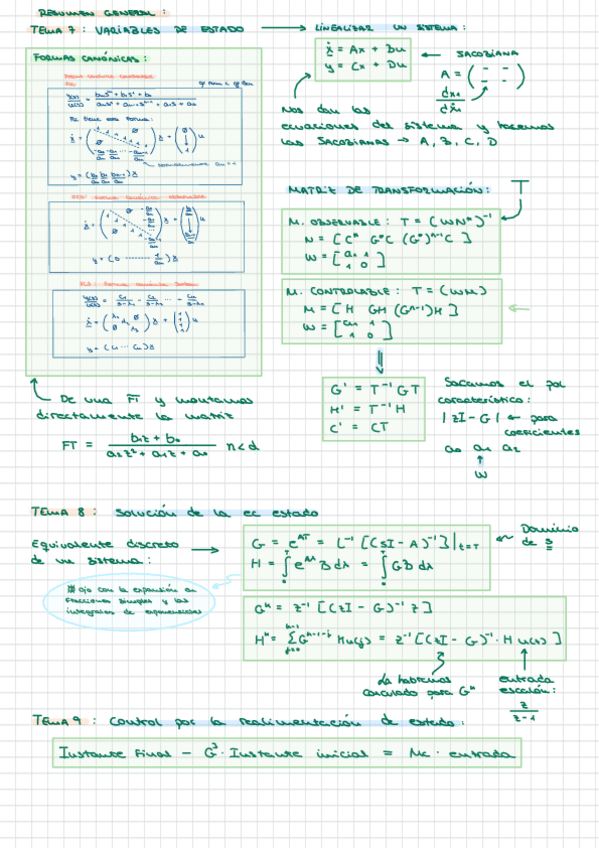 RESUMEN GENERAL:
TEMA 7: VARIABLES DE ESTADO → LINEALIZAR UN SISTEMA:
FORMAS CANÓNICAS:
FT tiene esta forma:
ẋ = Ax + Bu
y = Cx + Du
← JACOBIANA
A = ( )
Nos dan las
ecuaciones del sistema y hacemos
las JACOBIANAS → A, B, C, D
MATRIZ DE TRANSFORMACIÓN: T
M. OBSERVABLE: T = (WN*)⁻¹
N = [C* G*C (G*)ⁿ⁻¹C]
W = [a₁ 1
1 0]
M. CONTROLABLE: T = (WM)
M = [H GH (Gⁿ⁻¹)H]
W = [a₁ 1
1 0]
G' = T⁻¹GT
H' = T⁻¹H
C' = CT
Sacamos el pol
característico:
|zI-G| ← para
coeficientes
a₀ a₁ a₂
↑
W
De una FT y montamos
directamente la matriz
FT = b₁z + b₀ / a₂z² + a₁z + a₀ n<d
TEMA 8: Solución de la ec estado
Equivalente discreto →
de un sistema:
G = e^AT = L⁻¹[(SI-A)⁻¹]|t=T
H = ∫₀ᵀ e^Aλ B dλ = ∫₀ᵀ GB dλ
Dominio
de s
ojo con la expansión en
fracciones simples y las
integrales de exponenciales
Gᵏ = z⁻¹[(zI-G)⁻¹z]
= z⁻¹[(zI-G)⁻¹·H u(z)]
La habremos
calculado para Gᵏ
entrada
escalón:
z / z-1
TEMA 9: Control por la realimentación de estado:
Instante final - G³·Instante inicial = Mc·entrada